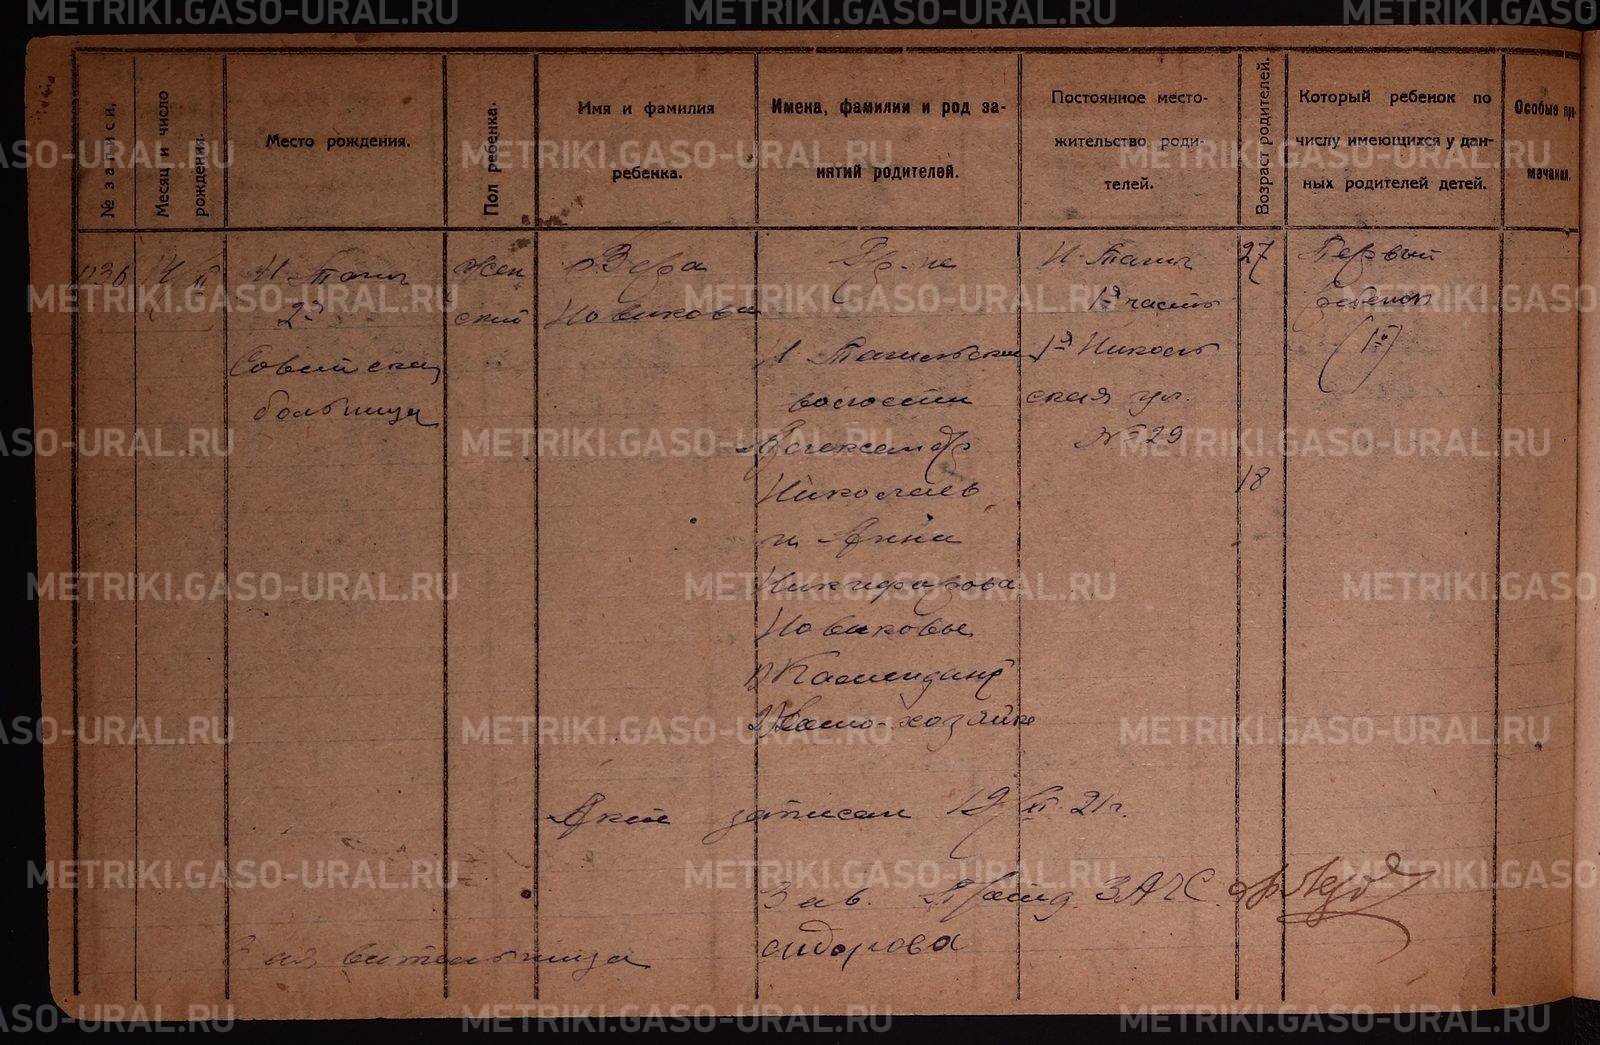 METRIKI.GASO-URAL.RU
№ записи.
Месяц и число рождения.
Место рождения.
Пол ребенка.
Имя и фамилия
ребенка.
Имена, фамилии и род за-
нятий родителей.
Постоянное место-
жительство роди-
телей.
Возраст родителей.
Который ребенок по
числу имеющихся у дан-
ных родителей детей.
Особые при-
мечания.
1136
Н-Тагил
2я
Советская
больница
жен
ский
Вера
Новикова
Гр-не
Н Тагильской
волости
Александр
Николаев
и Анна
Никифорова
Новиковы
1) Комендант
2) Домо-хозяйка
Н-Тагил
1я часть
1я Николь
ская ул.
№ 29
27
18
Первый
ребенок
(1й)
Акт записан 12/XII 21 г.
Зав. ЗАГС
Заявительница
Сидорова